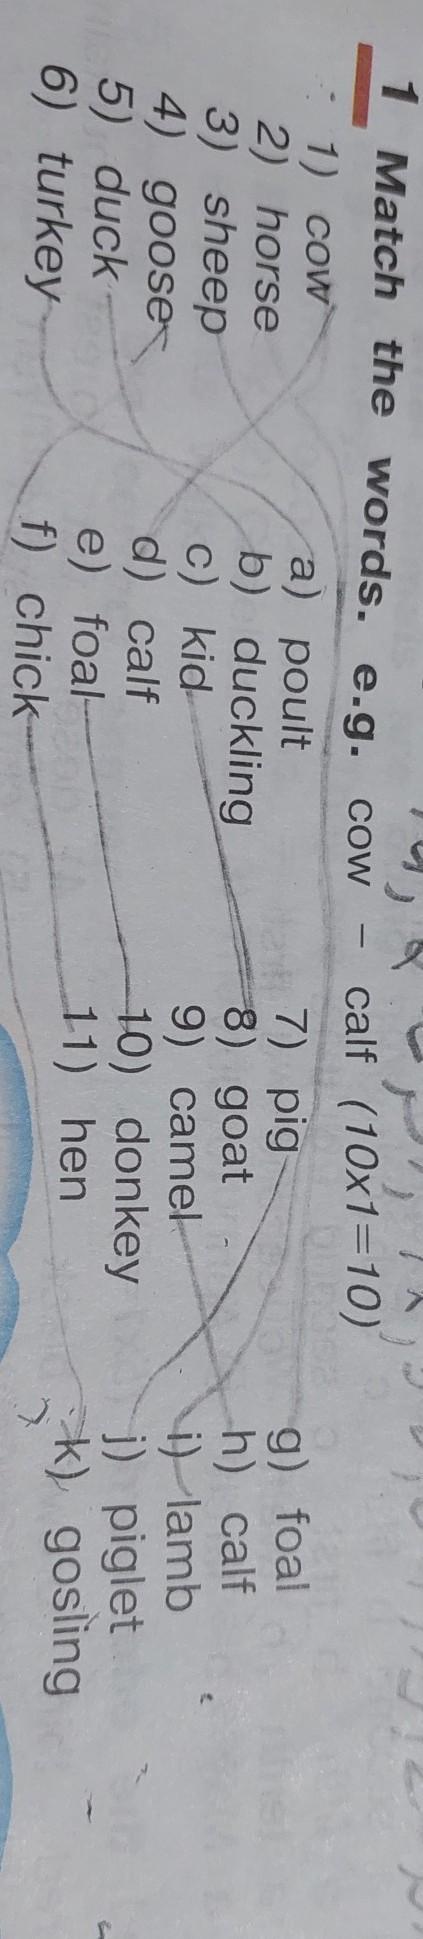 1 Match the words. e.g. cow – calf (10x1=10)
1) cow
2) horse
3) sheep
4) goose
5) duck
6) turkey
a) poult
b) duckling
c) kid
d) calf
e) foal
f) chick
7) pig
8) goat
9) camel
10) donkey
11) hen
g) foal
h) calf
i) lamb
j) piglet
k) gosling